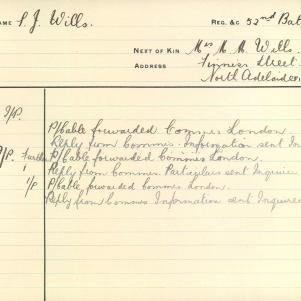 NAME P. J. Wills. REG. &C 52nd Bat
NEXT OF KIN Mrs M. M. Wills
ADDRESS Finniss Street.
North Adelaide
P/Cable forwarded Commrs London.
Reply from Commrs. Information sent In
P/Cable forwarded Commrs London.
Reply from Commrs. Particulars sent Inquirer
1/P P/Cable forwarded Commrs London.
Reply from Commrs Information sent Inquirer